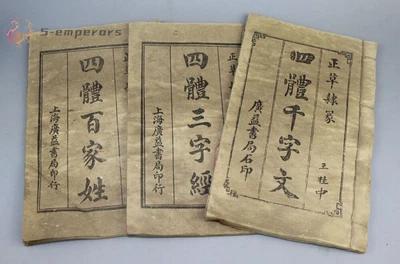 5-emperors
四體百家姓
上海廣益書局印行
四體三字經
上海廣益書局印行
正草隸篆
四體千字文
廣益書局石印